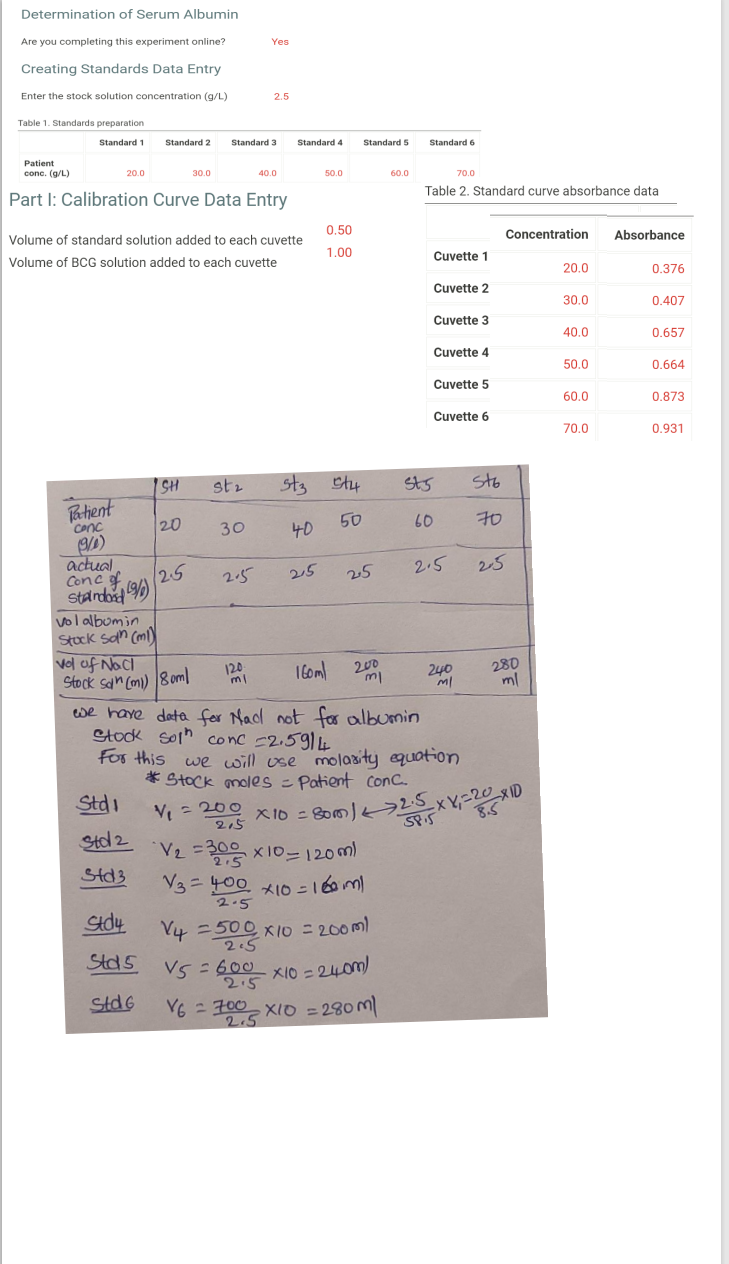 Determination of Serum Albumin
Are you completing this experiment online? Yes
Creating Standards Data Entry
Enter the stock solution concentration (g/L) 2.5
Table 1. Standards preparation
Standard 1 Standard 2 Standard 3 Standard 4 Standard 5 Standard 6
Patient
conc. (g/L) 20.0 30.0 40.0 50.0 60.0 70.0
Part I: Calibration Curve Data Entry
Volume of standard solution added to each cuvette 0.50
Volume of BCG solution added to each cuvette 1.00
Table 2. Standard curve absorbance data
Concentration Absorbance
Cuvette 1 20.0 0.376
Cuvette 2 30.0 0.407
Cuvette 3 40.0 0.657
Cuvette 4 50.0 0.664
Cuvette 5 60.0 0.873
Cuvette 6 70.0 0.931
St1 St2 St3 St4 St5 St6
Patient
conc
(g/l) 20 30 40 50 60 70
actual
conc of
standard (g/l) 2.5 2.5 2.5 2.5 2.5 2.5
vol albumin
stock soln (ml)
vol of NaCl
stock soln (ml) 80ml 120 ml 160ml 200 ml 240 ml 280 ml
we have data for Nacl not for albumin
Stock solⁿ conc = 2.5g/L
For this we will use molarity equation
* Stock moles = Patient conc.
Std1 V₁ = 200/2.5 x 10 = 80ml ↔ 2.5/58.5 x V₁ = 20/8.5 x 10
Std2 V2 = 300/2.5 x 10 = 120ml
Std3 V3 = 400/2.5 x 10 = 160ml
Std4 V4 = 500/2.5 x 10 = 200ml
Std5 V5 = 600/2.5 x 10 = 240ml
Std6 V6 = 700/2.5 x 10 = 280ml